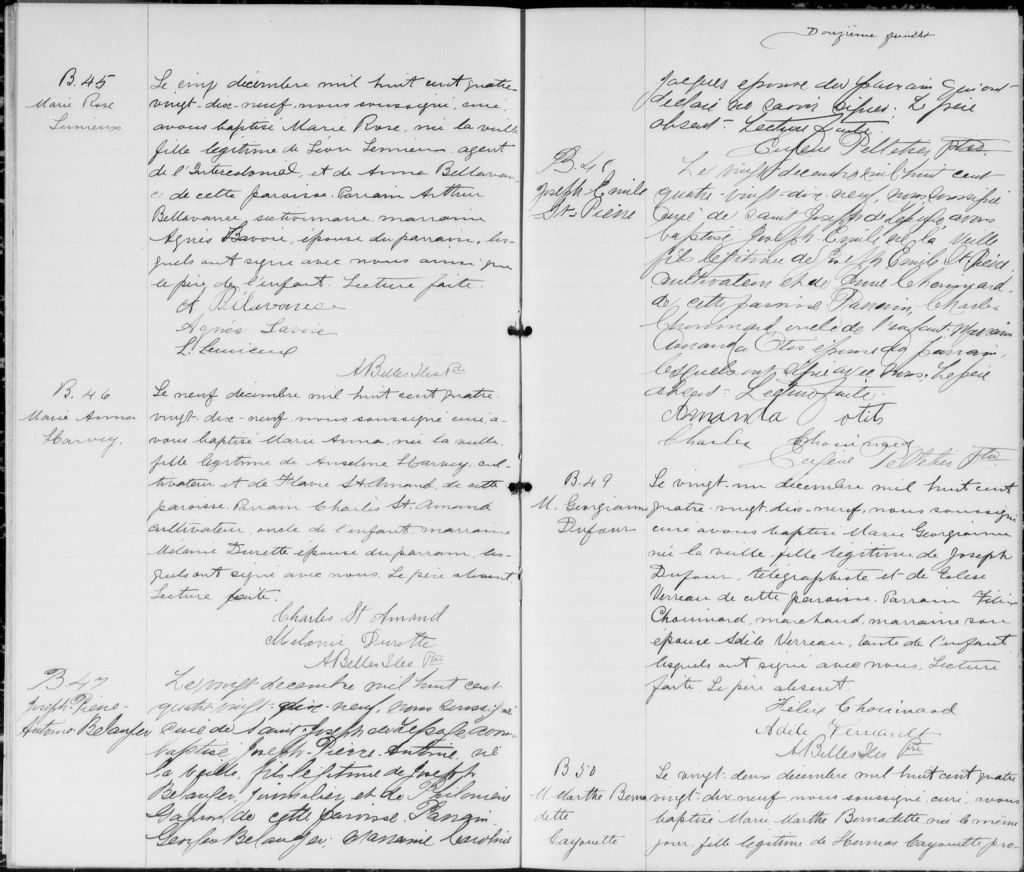 B. 45
Marie Rose
Lemieux
Le cinq décembre mil huit cent quatre-
vingt-dix-neuf, nous soussigné, curé,
avons baptisé Marie Rose, née la veille
fille légitime de Léon Lemieux, agent
de l'Intercolonial, et de Anna Bellavan-
ce de cette paroisse. Parrain Arthur
Bellavance, sectionnaire, marraine
Agnès Lavoie, épouse du parrain, les-
quels ont signé avec nous ainsi que
le père de l'enfant. Lecture faite.
A Bélavance
Agnès Lavoie
L. Lemieux
A Belles Iles Ptre
B. 46
Marie Anna
Harvey.
Le neuf décembre mil huit cent quatre-
vingt-dix-neuf, nous soussigné curé, a-
vons baptisé Marie Anna, née la veille,
fille légitime de Anselme Harvey, cul-
tivateur et de Flavie St. Amand, de cette
paroisse. Parrain Charles St. Amand
cultivateur, oncle de l'enfant, marraine
Mélanie Durette épouse du parrain, les-
quels ont signé avec nous. Le père absent
Lecture faite.
Charles St Amand
Melanie Durette
A Belles Iles Ptre
B. 47
Joseph-Pierre-
Antoine Belanger
Le vingt decembre mil huit cent
quatre vingt-dix-neuf, nous soussigné
curé de Saint-Joseph de Lepage avons
baptisé Joseph-Pierre-Antoine, né
la veille, fils legitime de Joseph
Belanger, journalier, et de Philomène
Gagnon de cette paroisse. Parrain
Georges Belanger. Marraine Caroline
Douzième feuillet
Jacques épouse du parrain qui ont
déclaré ne savoir signer. Le père
absent. Lecture faite.
Eugène Pelletier Ptre.
B. 48
Joseph-Emile
St-Pierre
Le vingt decembre mil huit cent
quatre-vingt-dix-neuf, nous soussigné
curé de Saint Joseph de Lepage avons
baptisé Joseph-Emile né la veille
fils légitime de Emile St. Pierre
cultivateur et de Chouinard.
de cette paroisse. Parrain, Charles
Chouinard, oncle de l'enfant, Marraine
Amanda Otis épouse du parrain,
lesquels ont signé avec nous. Le père
absent. Lecture faite.
Amanda otis
Charles Chouinard
Eugène Pelletier Ptre
B. 49
M. Georgianna
Dufour
Le vingt-un décembre mil huit cent
quatre-vingt-dix-neuf, nous soussigné
curé avons baptisé Marie Georgianna
née la veille, fille légitime de Joseph
Dufour, télégraphiste et de
Verreau de cette paroisse. Parrain Félix
Chouinard, marchand, marraine son
épouse Adèle Verreau, tante de l'enfant
lesquels ont signé avec nous. Lecture
faite. Le père absent.
Félix Chouinard
Adèle Verreault
A Belles Iles Ptre
B. 50
M. Marthe Berna
dette
Cayouette
Le vingt-deux décembre mil huit cent quatre
vingt-dix-neuf, nous soussigné, curé, avons
baptisé Marie Marthe Bernadette née le même
jour, fille légitime de Hermas Cayouette pro-